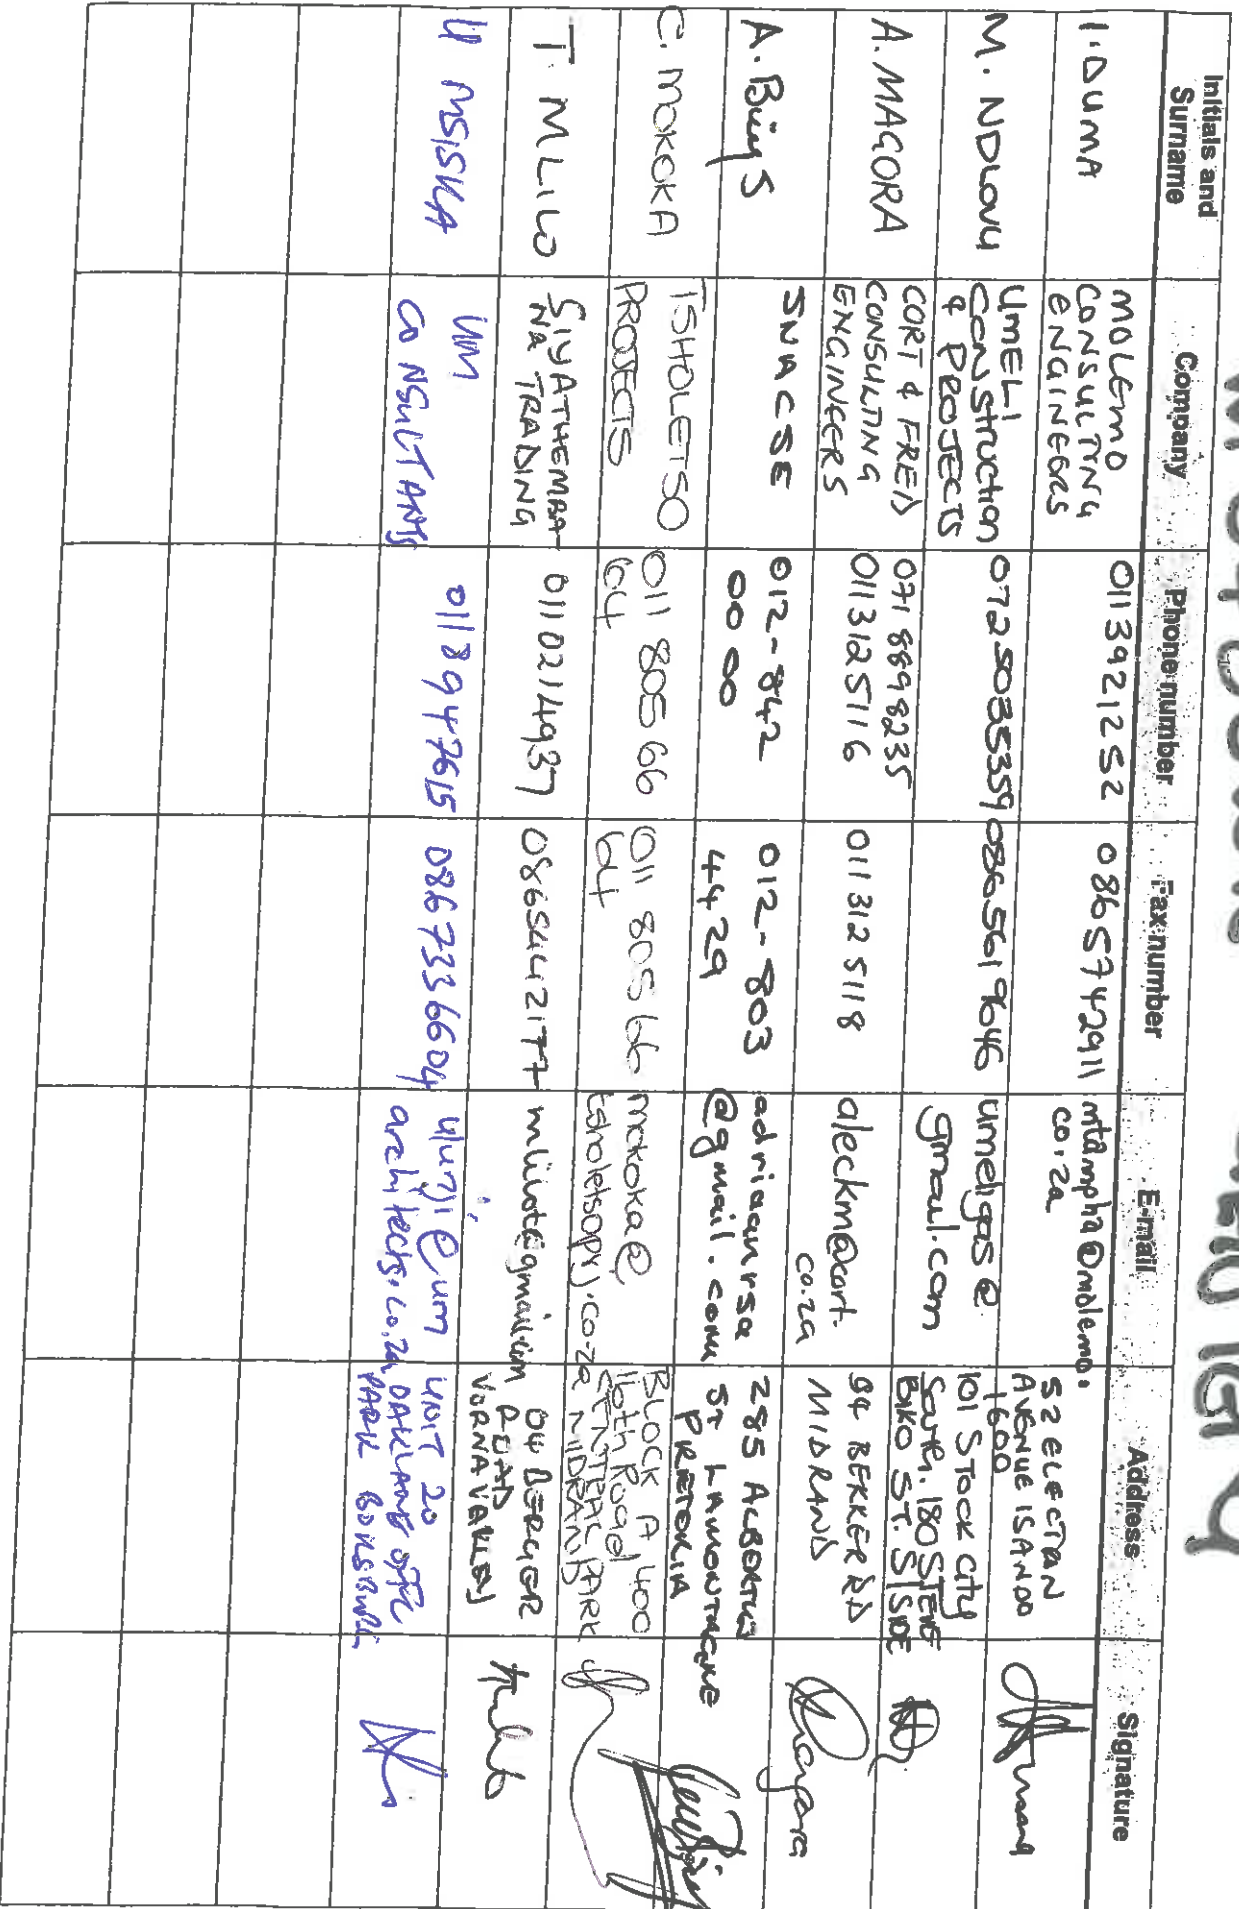 Initials and Surname
Company
Phone number
Fax number
E-mail
Address
Signature
I. DUMA
MOLEMO
CONSULTING
ENGINEERS
0113921252
0865742911
mtdmpha@molemo.
co.za
52 ELECTRON
AVENUE ISANDO
1600
M. NDLOVU
UMELI
Construction
& PROJECTS
0725035359
0865619646
umeligas@
gmail.com
101 STOCK City
South. 180 STEVE
BIKO ST. S/SIDE
A. MAGORA
CORT & FREID
CONSULTING
ENGINEERS
071 8898235
0113125116
011 312 5118
aleckm@cort.
co.za
94 BEKKER RD
MIDRAND
A. Buys
SNACSE
012-842
0000
012-803
4429
adriaanrsa
@gmail.com
285 ALBERTUS
ST LAMONTAGNE
PRETORIA
C. MOKOKA
TSHOLETSO
PROJECTS
011 805 66
64
011 805 66
64
mokoka@
tsholetsopkj.co.za
BLOCK A 400
16th Road
CENTRAL PARK
MIDRAND
T. MLILO
SIYATHEMBA
NA TRADING
0110214937
0865442177
04 BERGER
ROAD
VORNA VALLEY
U MSISKA
UM
CONSULTANTS
0118947615
0867336604
ulunji@um
architects.co.za
UNIT 20
OAKLAND OFFICE
PARK BOKSBURG